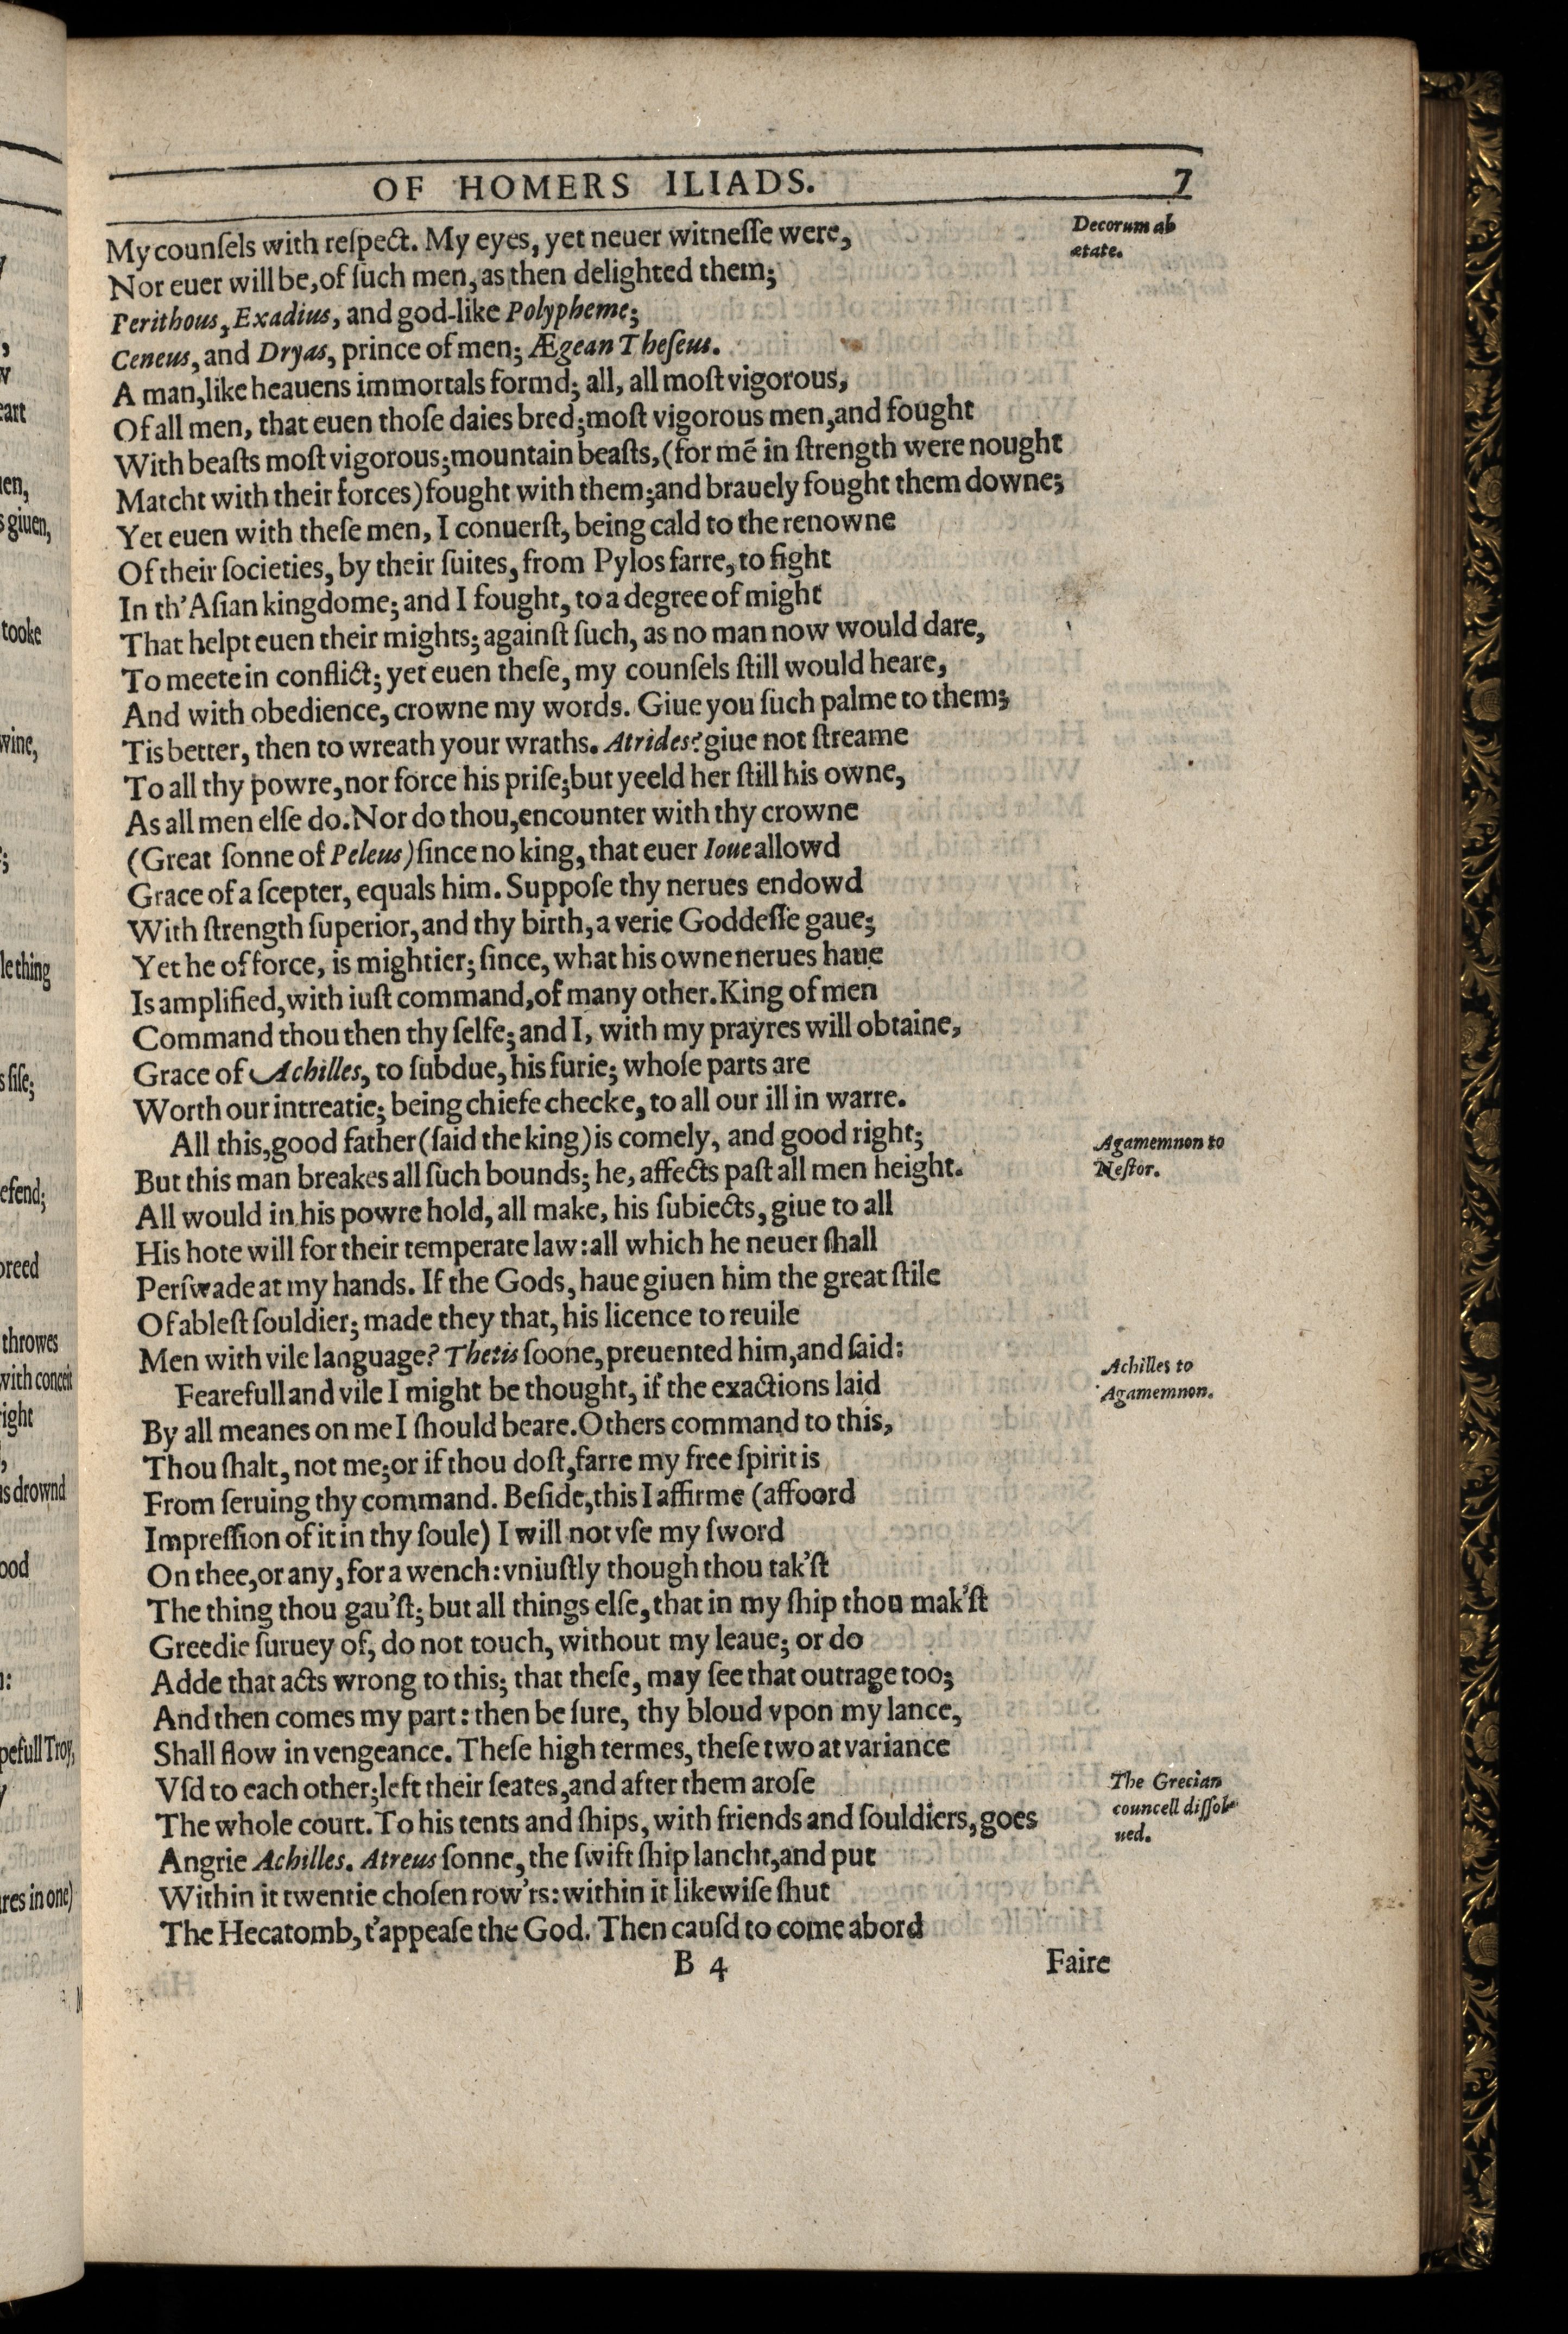 OF HOMERS ILIADS. 7
My counſels with reſpect. My eyes, yet neuer witneſſe were,
Decorum ab
ætate.
Nor euer will be, of ſuch men, as then delighted them;
Perithous, Exadius, and god-like Polypheme;
Ceneus, and Dryas, prince of men; Ægean Theſeus.
A man, like heauens immortals formd; all, all moſt vigorous,
Of all men, that euen thoſe daies bred; moſt vigorous men, and fought
With beaſts moſt vigorous; mountain beaſts, (for mē in ſtrength were nought
Matcht with their forces) fought with them; and brauely fought them downe;
Yet euen with theſe men, I conuerſt, being cald to the renowne
Of their ſocieties, by their ſuites, from Pylos farre, to fight
In th'Aſian kingdome; and I fought, to a degree of might
That helpt euen their mights; againſt ſuch, as no man now would dare,
To meete in conflict; yet euen theſe, my counſels ſtill would heare,
And with obedience, crowne my words. Giue you ſuch palme to them;
Tis better, then to wreath your wraths. Atrides? giue not ſtreame
To all thy powre, nor force his priſe; but yeeld her ſtill his owne,
As all men elſe do. Nor do thou, encounter with thy crowne
(Great ſonne of Peleus) ſince no king, that euer Ioue allowd
Grace of a ſcepter, equals him. Suppoſe thy nerues endowd
With ſtrength ſuperior, and thy birth, a verie Goddeſſe gaue;
Yet he of force, is mightier; ſince, what his owne nerues haue
Is amplified, with iuſt command, of many other. King of men
Command thou then thy ſelfe; and I, with my prayres will obtaine,
Grace of Achilles, to ſubdue, his furie; whoſe parts are
Worth our intreatie; being chiefe checke, to all our ill in warre.
All this, good father (ſaid the king) is comely, and good right;
Agamemnon to
Neſtor.
But this man breakes all ſuch bounds; he, affects paſt all men height.
All would in his powre hold, all make, his ſubiects, giue to all
His hote will for their temperate law: all which he neuer ſhall
Perſwade at my hands. If the Gods, haue giuen him the great ſtile
Of ableſt ſouldier; made they that, his licence to reuile
Men with vile language? Thetis ſoone, preuented him, and ſaid:
Achilles to
Agamemnon.
Fearefull and vile I might be thought, if the exactions laid
By all meanes on me I ſhould beare. Others command to this,
Thou ſhalt, not me; or if thou doſt, farre my free ſpirit is
From ſeruing thy command. Beſide, this I affirme (affoord
Impreſſion of it in thy ſoule) I will not vſe my ſword
On thee, or any, for a wench: vniuſtly though thou tak'ſt
The thing thou gau'ſt; but all things elſe, that in my ſhip thou mak'ſt
Greedie ſuruey of, do not touch, without my leaue; or do
Adde that acts wrong to this; that theſe, may ſee that outrage too;
And then comes my part: then be ſure, thy bloud vpon my lance,
Shall flow in vengeance. Theſe high termes, theſe two at variance
Vſd to each other; left their ſeates, and after them aroſe
The Grecian
councell diſſol-
ued.
The whole court. To his tents and ſhips, with friends and ſouldiers, goes
Angrie Achilles. Atreus ſonne, the ſwift ſhip lancht, and put
Within it twentie choſen row'rs: within it likewiſe ſhut
The Hecatomb, t'appeaſe the God. Then cauſd to come abord
B 4 Faire